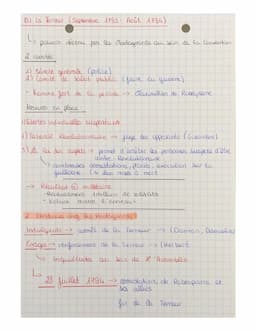 D) La Terreur (Septembre 1793 - Août 1794)
↳ pouvoir détenu par les Montagnards au sein de la Convention
2 comités
1) Sûreté générale (police)
2) Comité de Salut public (faire la guerre)
- homme fort de la période → Maximilien de Robespierre
Mesures en place :
1) libertés individuelles suspendues
2) Tribunal Révolutionnaire → juge des opposants
3) Loi des suspects → permet d'arrêter les personnes suspects d'être
contre-Révolutionnaire
↳ nombreuses arrestations, procès, exécution sur la
guillotine
→ Résultat militaire
- Recrutement
- Victoire
2. Divisions chez les Montagnards
Indulgents → arrêt de la Terreur → (Danton, Desmoulins)
Enragés → renforcement de la Terreur → (Hébert)
↳ Inquiétudes au sein de l'Assemblée
↳ 28 juillet 1794 → arrestation de Robespierre et
ses alliés
fin de la Terreur